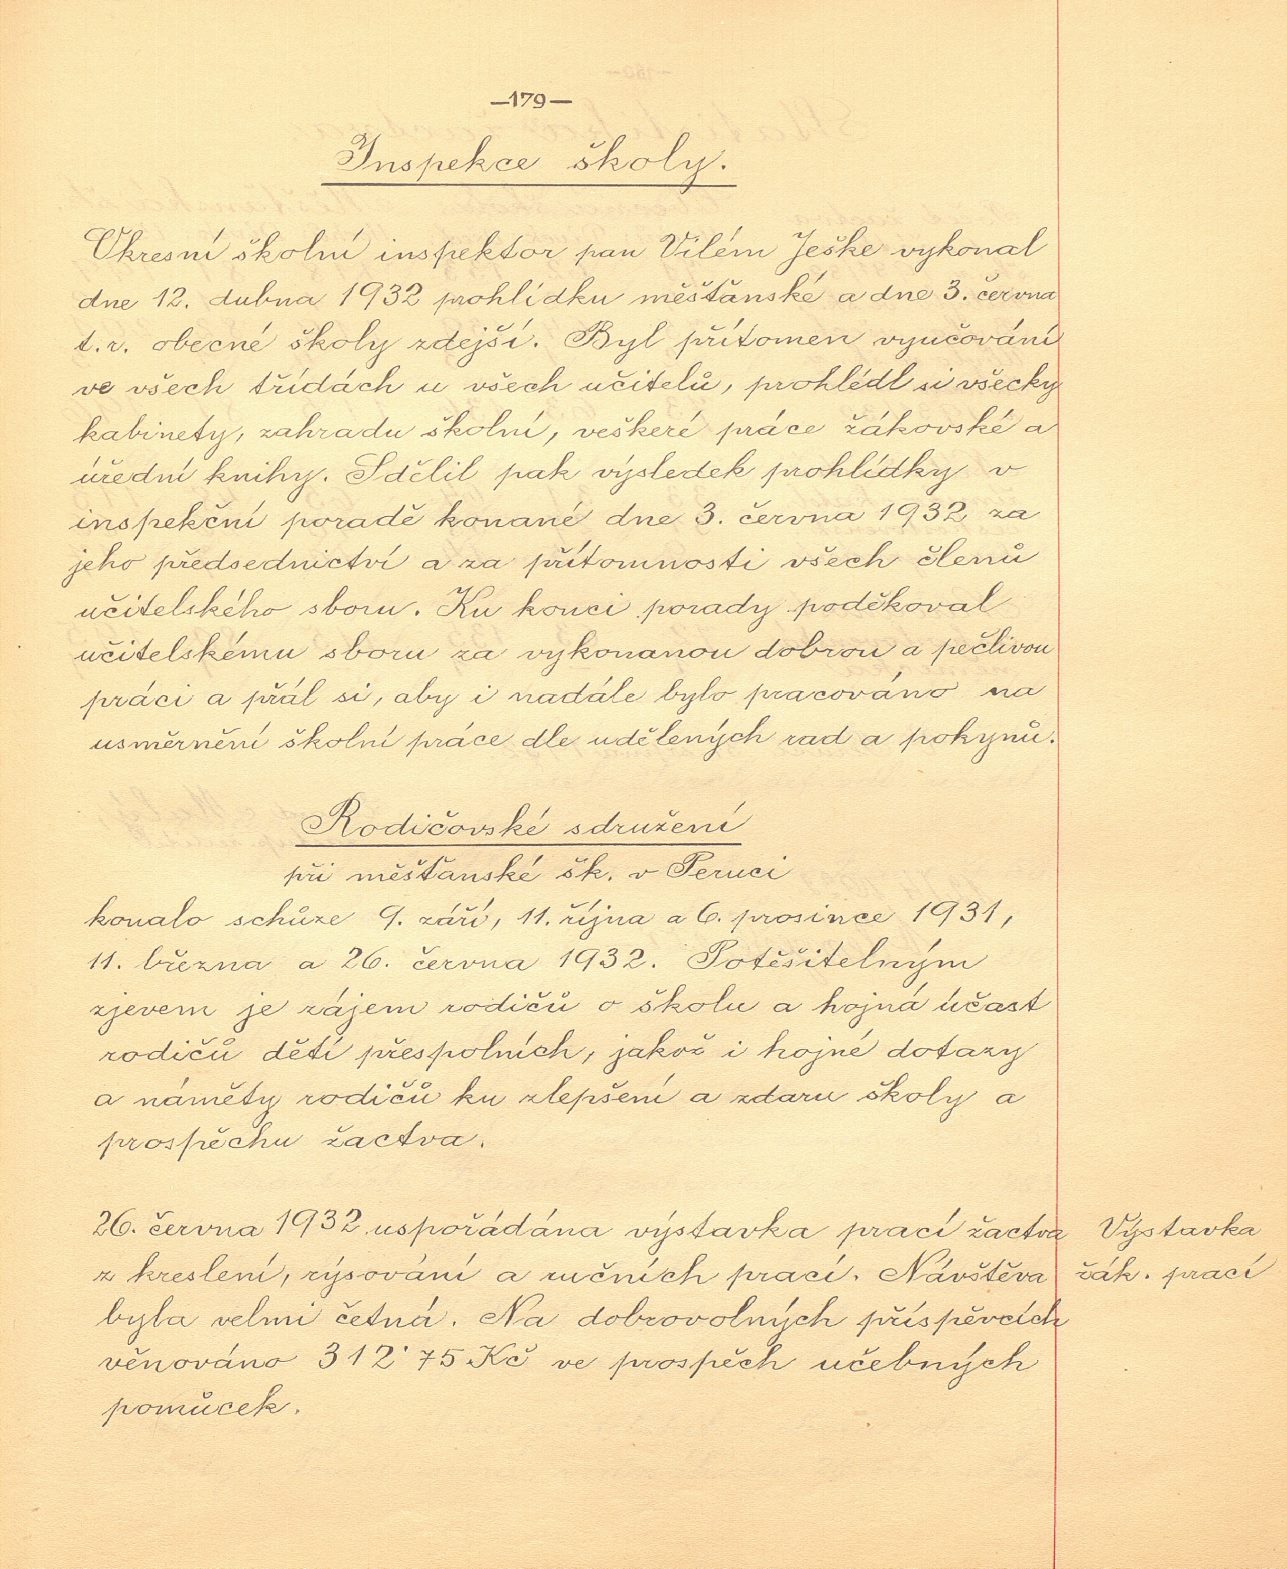 —179—
Inspekce školy.
Okresní školní inspektor pan Vilém Ješke vykonal
dne 12. dubna 1932 prohlídku měšťanské a dne 3. června
t. r. obecné školy zdejší. Byl přítomen vyučování
ve všech třídách u všech učitelů, prohlédl si všecky
kabinety, zahradu školní, veškeré práce žákovské a
úřední knihy. Sdělil pak výsledek prohlídky v
inspekční poradě konané dne 3. června 1932 za
jeho předsednictví a za přítomnosti všech členů
učitelského sboru. Ku konci porady poděkoval
učitelskému sboru za vykonanou dobrou a pečlivou
práci a přál si, aby i nadále bylo pracováno na
usměrnění školní práce dle udělených rad a pokynů.
Rodičovské sdružení
při měšťanské šk. v Peruci
konalo schůze 9. září, 11. října a 6. prosince 1931,
11. března a 26. června 1932. Potěšitelným
zjevem je zájem rodičů o školu a hojná účast
rodičů dětí přespolních, jakož i hojné dotazy
a náměty rodičů ku zlepšení a zdaru školy a
prospěchu žactva.
26. června 1932 uspořádána výstavka prací žactva
z kreslení, rýsování a ručních prací. Návštěva
byla velmi četná. Na dobrovolných příspěvcích
věnováno 312˙75 Kč ve prospěch učebných
pomůcek.
Výstavka
žák. prací